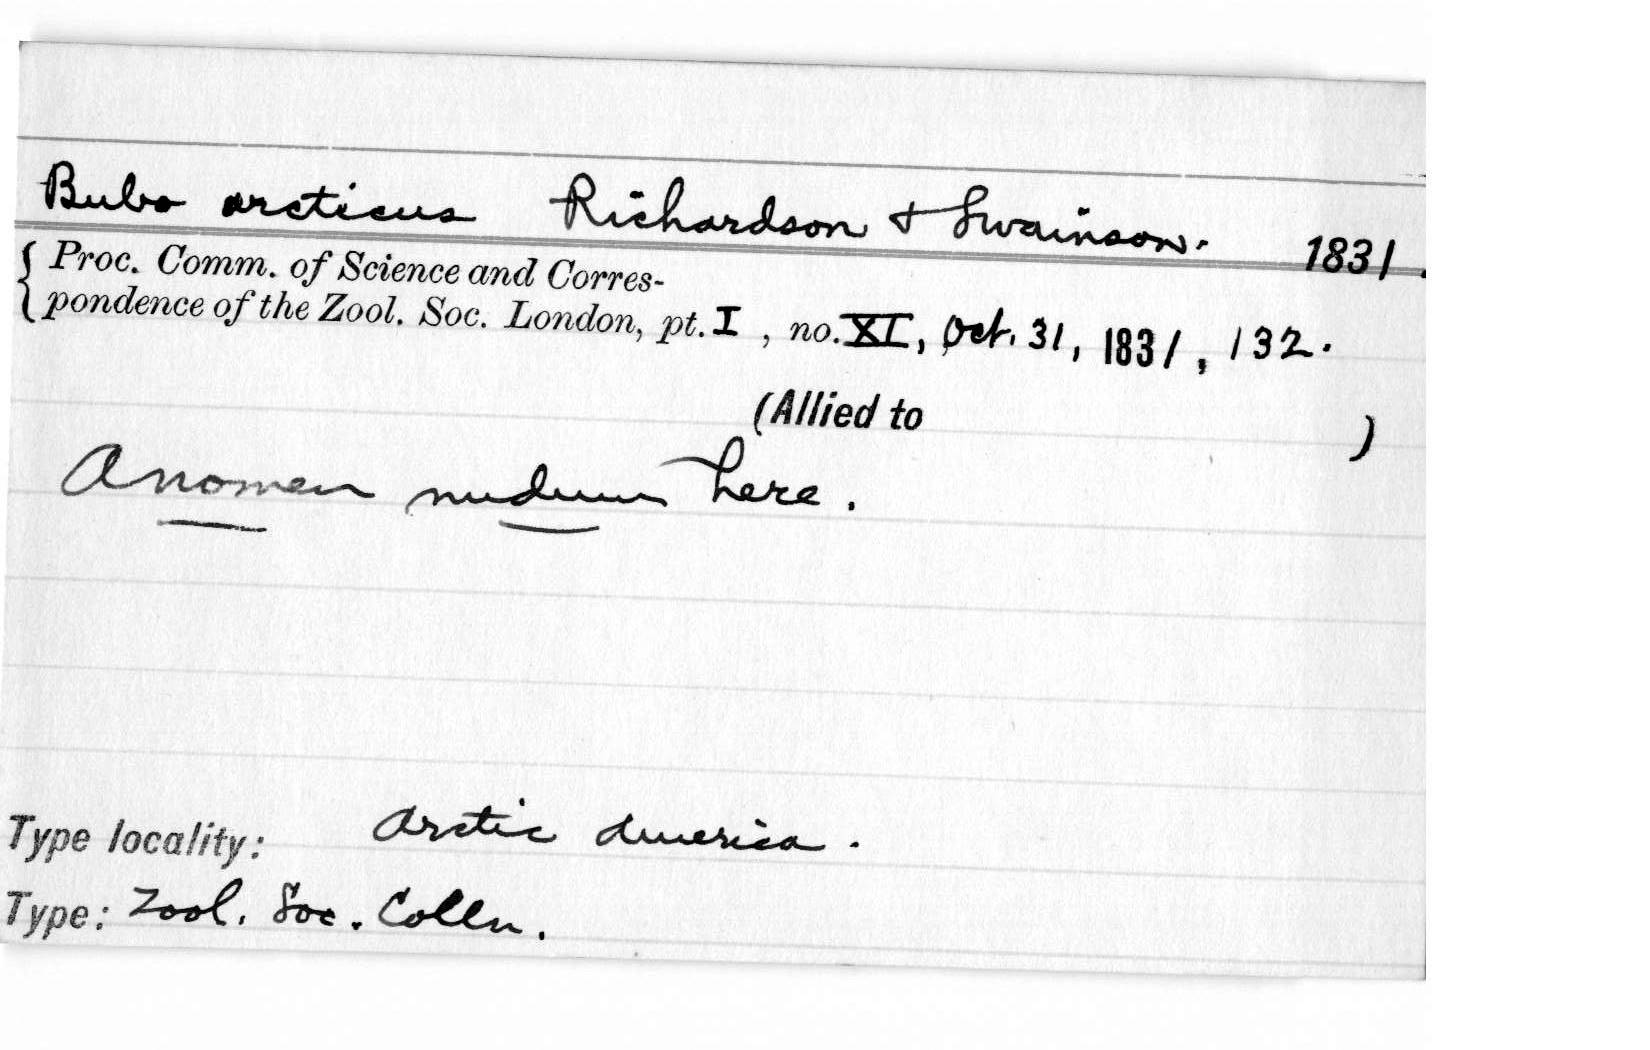 Bubo arcticus Richardson & Swainson. 1831.
{ Proc. Comm. of Science and Corres-
pondence of the Zool. Soc. London, pt. I, no. XI, Oct. 31, 1831, 132.
(Allied to )
A nomen nudum here.
Type locality: Arctic America.
Type: Zool. Soc. Colln.